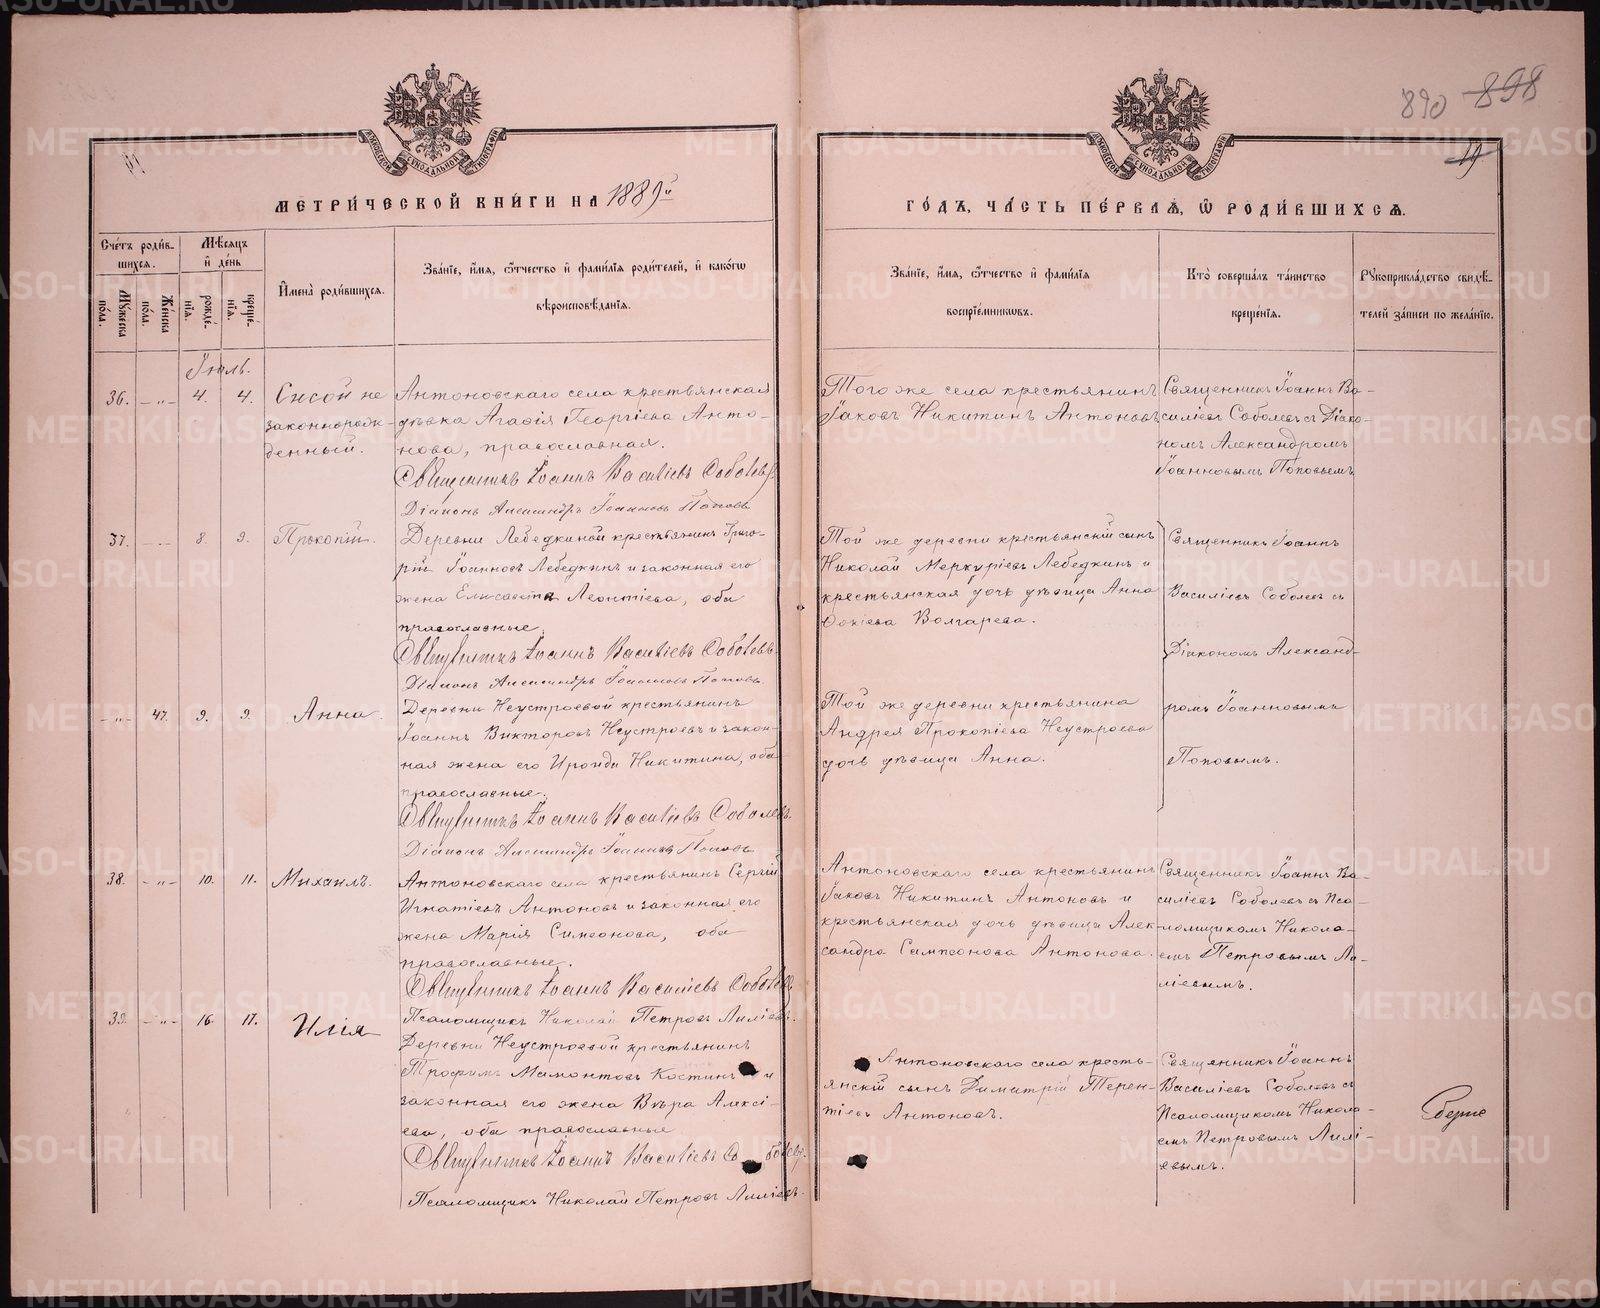 890 898
19
МОСКОВСКОЙ СѴНОДАЛЬНОЙ ТИПОГРАФІИ
МОСКОВСКОЙ СѴНОДАЛЬНОЙ ТИПОГРАФІИ
МЕТРИ́ЧЕСКОЙ КНИ́ГИ НА 1889й
ГО́ДЪ, ЧА́СТЬ ПЕ́РВАѦ, Ѡ РОДИ́ВШИХСѦ.
Сче́тъ роди́в-
шихсѧ.
Мужеска по́ла.
Же́нска по́ла.
Мѣ́сѧцъ
и҆ де́нь
рожде́-
нїѧ.
креще́-
нїѧ.
И҆мена̀ роди́вшихсѧ.
Зва́нїе, и҆́мѧ, ѻ҆́тчество и҆ фами́лїѧ роди́телей, и҆ како́гѡ
вѣроисповѣ́данїѧ.
Зва́нїе, и҆́мѧ, ѻ҆́тчество и҆ фами́лїѧ
воспрїе́мниковъ.
Кто̀ соверша́лъ та́инство
креще́нїѧ.
Рꙋкоприкла́дство свидѣ́-
телей за́писи по жела́нїю.
Іюль.
36. – „ – 4. 4. Сисой не
законнорож-
денный.
Антоновскаго села крестьянская
дѣвка Агафія Георгіева Анто-
нова, православная.
Священникъ Іоаннъ Василіевъ Соболевъ
Діаконъ Александръ Іоанновъ Поповъ
Того же села крестьянинъ
Іаковъ Никитинъ Антоновъ
Священникъ Іоаннъ Ва-
силіевъ Соболевъ съ Діако-
номъ Александромъ
Іоанновымъ Поповымъ
37. – „ – 8. 9. Прокопій.
Деревни Лебедкиной крестьянинъ Григо-
рій Іоанновъ Лебедкинъ и законная его
жена Елисавета Леонтіева, оба
православные.
Священникъ Іоаннъ Василіевъ Соболевъ.
Діаконъ Александръ Іоанновъ Поповъ.
Той же деревни крестьянскій сынъ
Николай Меркуріевъ Лебедкинъ и
крестьянская дочь дѣвица Анна
Фокіева Волгарева.
Священникъ Іоаннъ
Василіевъ Соболевъ съ
Діакономъ Александ-
ромъ Іоанновымъ
Поповымъ.
– „ – 47. 9. 9. Анна.
Деревни Неустроевой крестьянинъ
Іоаннъ Викторовъ Неустроевъ и закон-
ная жена его Ироида Никитина, оба
православные.
Священникъ Іоаннъ Василіевъ Соболевъ.
Діаконъ Александръ Іоанновъ Поповъ
Той же деревни крестьянина
Андрея Прокопіева Неустроева
дочь дѣвица Анна.
38. – „ – 10. 11. Михаилъ.
Антоновскаго села крестьянинъ Сергій
Игнатіевъ Антоновъ и законная его
жена Марія Симеонова, оба
православные.
Священникъ Іоаннъ Василіевъ Соболевъ
Псаломщикъ Николай Петровъ Лиліевъ.
Антоновскаго села крестьянинъ
Іаковъ Никитинъ Антоновъ и
крестьянская дочь дѣвица Алек-
сандра Сампсонова Антонова.
Священникъ Іоаннъ Ва-
силіевъ Соболевъ съ Пса-
ломщикомъ Никола-
емъ Петровымъ Ли-
ліевымъ.
39. – „ – 16. 17. Илія
Деревни Неустроевой крестьянинъ
Трофимъ Мамонтовъ Костинъ и
законная его жена Вѣра Алексі-
ева, оба православные
Священникъ Іоаннъ Василіевъ Соболевъ.
Псаломщикъ Николай Петровъ Лиліевъ.
Антоновскаго села кресть-
янскій сынъ Димитрій Терен-
тіевъ Антоновъ.
Священникъ Іоаннъ
Василіевъ Соболевъ съ
Псаломщикомъ Никола-
емъ Петровымъ Лилі-
евымъ.
METRIKI.GASO-URAL.RU